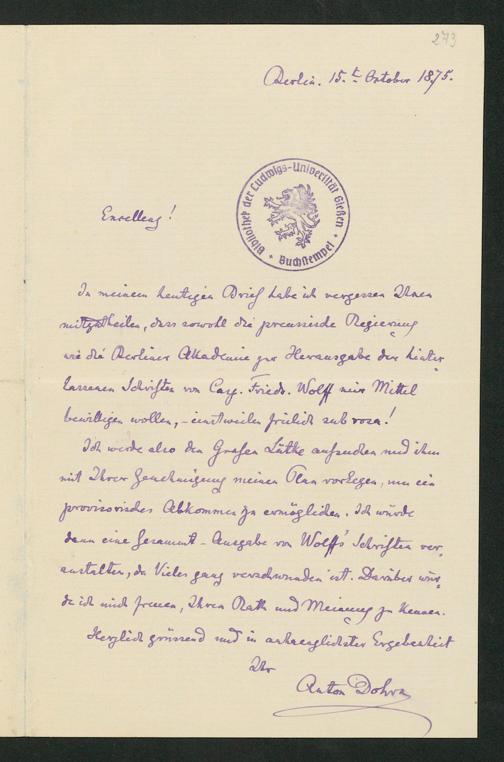 273
Berlin. 15.t October 1875.
Bibliothek der Ludwigs-Universität Gießen
Buchstempel
Excellenz!
In meinem heutigen Brief habe ich vergessen Ihnen
mitzutheilen, dass sowohl die preussische Regierung
wie die Berliner Akademie zur Herausgabe der hinter-
lassenen Schriften von Casp. Friedr. Wolff mir Mittel
bewilligen wollen, – einstweilen freilich sub rosa!
Ich werde also den Grafen Lütke aufsuchen und ihm
mit Ihrer Genehmigung meinen Plan vorlegen, um ein
provisorisches Abkommen zu ermöglichen. Ich würde
dann eine Gesammt-Ausgabe von Wolff's Schriften ver-
anstalten, da Vieles ganz verschwunden ist. Darüber wür-
de ich mich freuen, Ihren Rath und Meinung zu kennen.
Herzlich grüssend und in anhaenglichster Ergebenheit
Ihr
Anton Dohrn